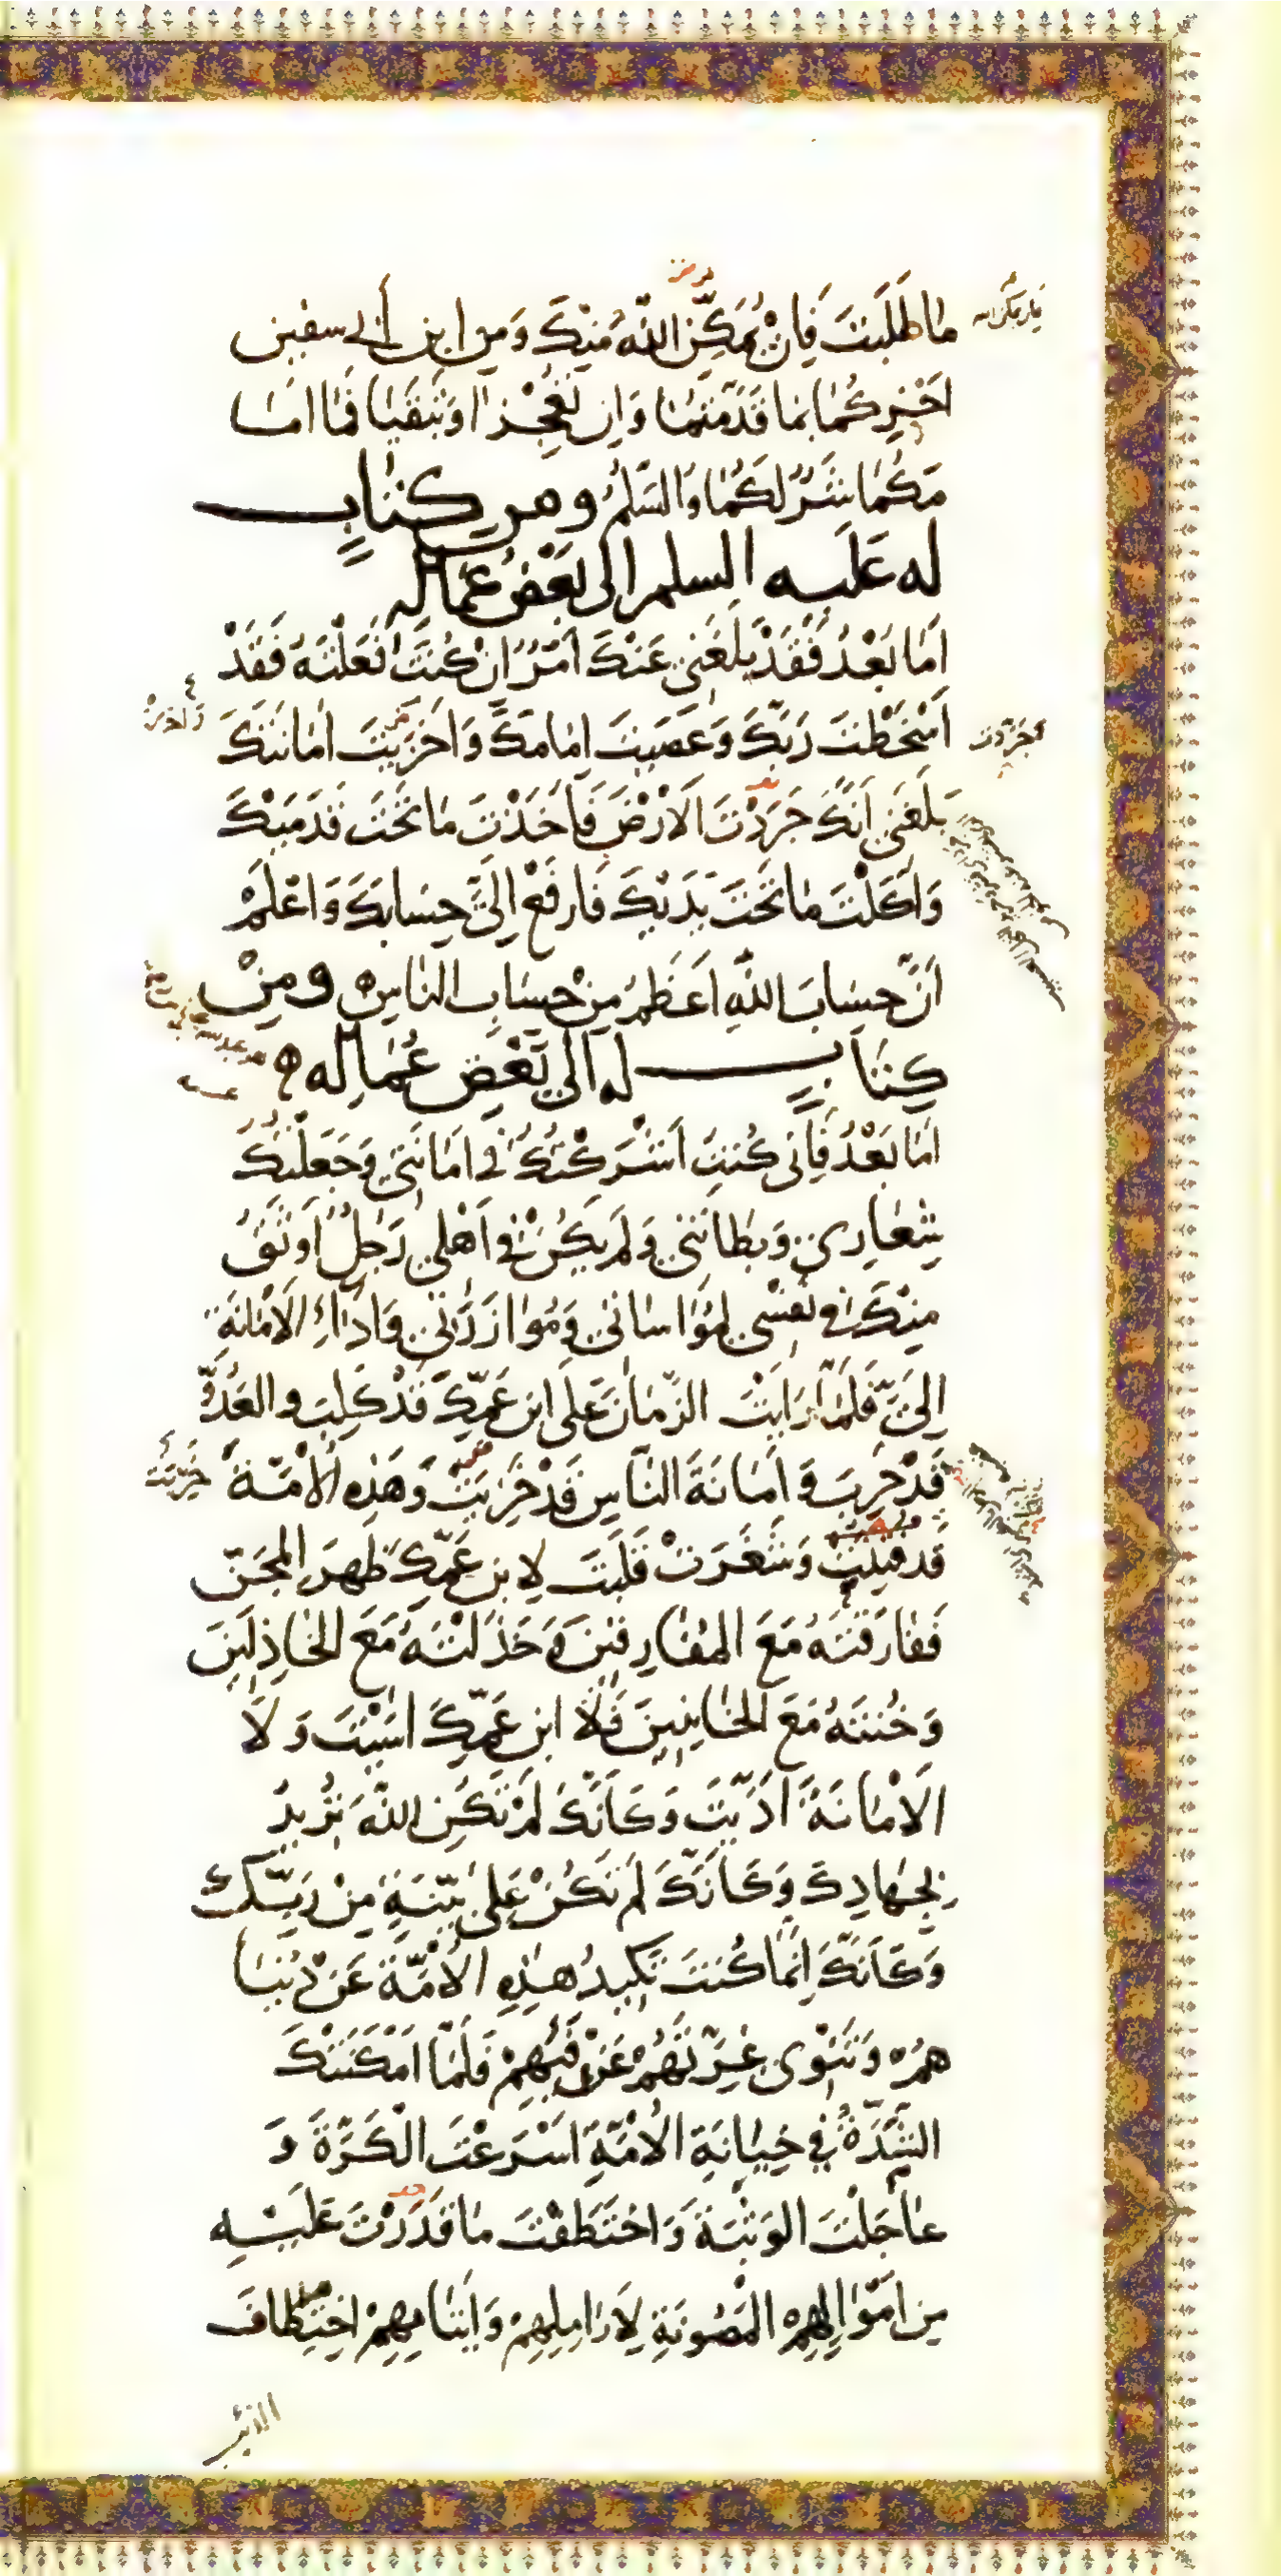 مَا طَلَبْتَ فَإِنْ يُمَكِّنِ اللّٰهُ مِنْكَ وَمِنِ ابْنِ أَبِي سفين
اَجْزِكُمَا بِمَا قَدَّمْتُمَا وَاِن تُعْجِزَا وَتَبْقَيَا فَمَا اَمَا
مَكُمَا شَرٌّ لَكُمَا وَالسَّلٰمُ ومن كتابٍ
له عَلَيه السلم الى بَعْضِ عُمّاله
اَمَّا بَعْدُ فَقَدْ بَلَغَنِي عَنْكَ اَمْرٌ اِنْ كُنْتَ فَعَلْتَهُ فَقَدْ
اَسْخَطْتَ رَبَّكَ وَعَصَيْتَ اِمَامَكَ وَاَخْزَيْتَ اَمَانَتَكَ
بَلَغَنِي اَنَّكَ جَرَّدْتَ الْاَرْضَ فَاَخَذْتَ مَا تَحْتَ قَدَمَيْكَ
وَاَكَلْتَ مَا تَحْتَ يَدَيْكَ فَارْفَعْ اِلَيَّ حِسَابَكَ وَاعْلَمْ
اَنَّ حِسَابَ اللّٰهِ اَعْظَمُ مِنْ حِسَابِ النَّاسِ ه ومِنْ
كِتَابٍ له الى بَعْضِ عُمَّالِه ه
اَمَّا بَعْدُ فَاِنِّي كُنْتُ اَشْرَكْتُكَ فِي اَمَانَتِي وَجَعَلْتُكَ
شِعَارِي وَبِطَانَتِي وَلَمْ يَكُنْ فِي اَهْلِي رَجُلٌ اَوْثَقُ
مِنْكَ فِي نَفْسِي لِمُوَاسَاتِي وَمُوَازَرَتِي وَاَدَاءِ الْاَمَانَةِ
اِلَيَّ فَلَمَّا رَاَيْتَ الزَّمَانَ عَلَى ابْنِ عَمِّكَ قَدْ كَلِبَ والعَدُوَّ
قَدْ حَرِبَ وَاَمَانَةَ النَّاسِ قَدْ خَزِيَتْ وَهٰذِهِ الْاُمَّةَ
قد فَنِكَتْ وَشَغَرَتْ قَلَبْتَ لِابنِ عَمِّكَ ظَهرَ المِجَنِّ
فَفَارَقْتَهُ مَعَ المُفَارِقِينَ وَخَذَلْتَهُ مَعَ الخَاذِلِينَ
وَخُنْتَهُ مَعَ الخَائِنِينَ فَلَا ابنَ عَمِّكَ اٰسَيْتَ وَلَا
الْاَمَانَةَ اَدَّيْتَ وَكَاَنَّكَ لَمْ تَكُنِ اللّٰهَ تُرِيدُ
بِجِهَادِكَ وَكَاَنَّكَ لَمْ تَكُنْ عَلَى بَيِّنَةٍ مِنْ رَبِّكَ
وَكَاَنَّكَ اِنَّمَا كُنْتَ تَكِيدُ هٰذِهِ الْاُمَّةَ عَنْ دُنْيَا
هُمْ وَتَنْوِي غِرَّتَهُمْ عَنْ فَيْئِهِمْ فَلَمَّا اَمْكَنَتْكَ
الشِّدَّةُ فِي خِيَانَةِ الْاُمَّةِ اَسْرَعْتَ الْكَرَّةَ وَ
عَاجَلْتَ الوَثْبَةَ وَاخْتَطَفْتَ مَا قَدَرْتَ عَلَيْهِ
مِن اَمْوَالِهِمُ المَصُونَةِ لِاَرَامِلِهِمْ وَاَيْتَامِهِمُ اخْتِطَافَ
الذئب